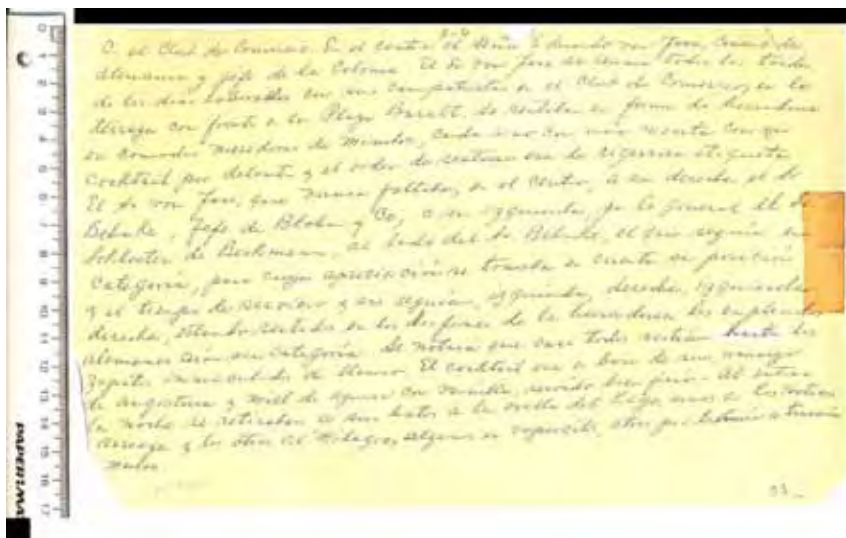 C. el Club de Comercio. En el centro el Señor Eduardo von Jess, Consul de
Alemania y jefe de la Colonia. El Sr von Jess se reunia todas las tardes
de los dias laborables con sus compatriotas en el Club de Comercio, en la
terraza con frente a la Plaza Baralt, se sentaba en forma de herradura
en comodas mecedoras de mimbre, cada uno con una mesita con su
cocktail por delante y el orden de sentarse era de rigurosa etiqueta
El Sr von Jess, que nunca faltaba, en el centro, a su derecha el Sr
Behnke, jefe de Blohm y Co, a su izquierda, por lo general el Sr
de Beckmann, al lado del Sr Behnke, el que seguia en
categoria, para cuya apreciación se tomaba en cuenta su posición
y el tiempo de servicio y asi seguia, izquierda, derecha, izquierda
derecha, estando sentados en los confines de la herradura los empleados
alemanes con su categoria. Se notara que casi todos vestian hasta los
zapatos inmaculados de blanco. El cocktail era a base de
de angostura y miel de con vainilla, servido bien frio. Al entrar
la noche se retiraban a sus hatos a la orilla del Lago, unos a los
Arreaga y los otros al Milagro, algunos en , otros por tranvia
mulas
33_
PAPERIMA
0 1 2 3 4 5 6 7 8 9 10 11 12 13 14 15 16 17